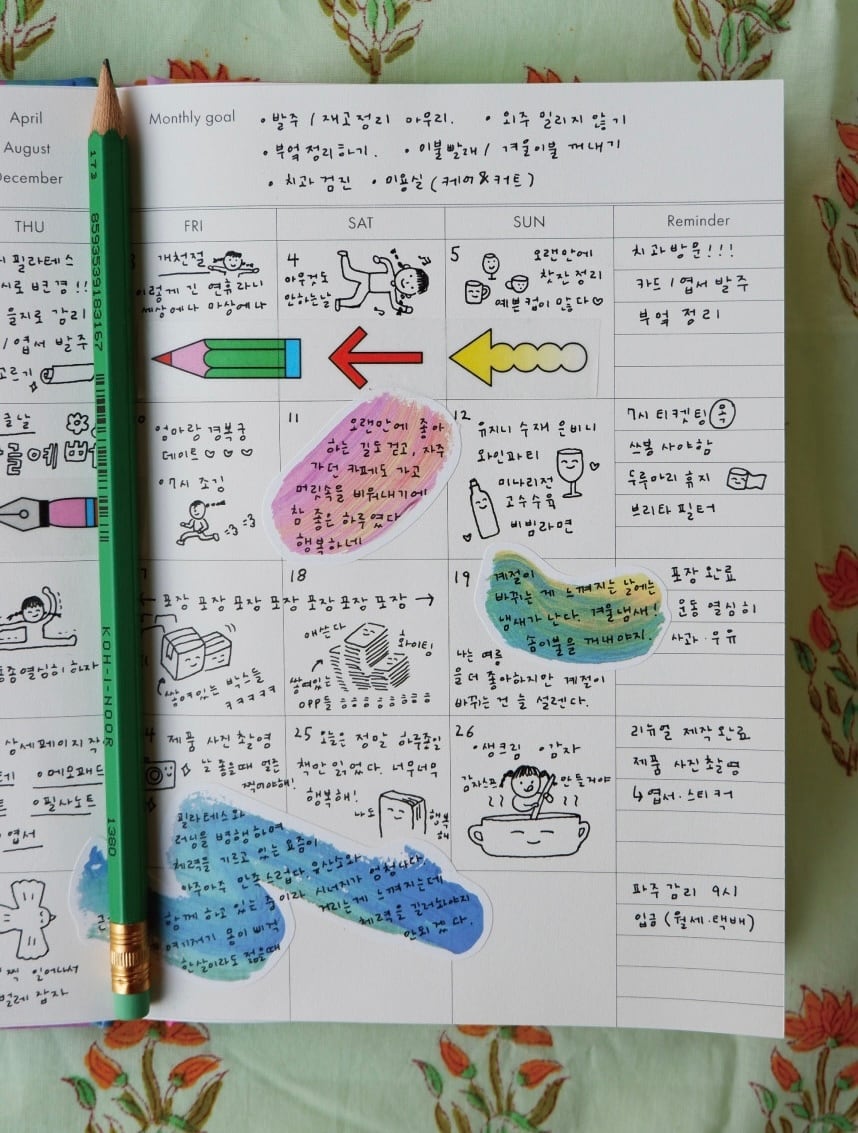 April
August
December
Monthly goal
• 발주 / 재고정리 마무리. • 외주 밀리지 않기
• 부엌정리하기. • 이불빨래 / 겨울이불 꺼내기
• 치과 검진 • 미용실 (케어&커트)
THU
FRI
SAT
SUN
Reminder
필라테스
시로 변경!!
을지로 감리
/ 엽서 발주
고르기
3 개천절
이렇게 긴 연휴라니
세상에나 마상에나
4
아무것도
안하는날
5 오랜만에
찻잔 정리
예쁜 컵이 많다♡
치과방문!!!
카드 / 엽서 발주
부엌 정리
글날
엄마랑 경복궁
데이트 ♡ ♡ ♡
•7시 조깅
11
오랜만에 좋아
하는 길도 걷고, 자주
가던 카페도 가고
머릿속을 비워내기에
참 좋은 하루였다
행복하네
12 유지니 수재 은비니
와인파티
미나리전
고수수육
비빔라면
7시 티켓팅 옥
쓰봉 사야함
두루마리 휴지
브리타 필터
열심히 하자
7
← 포장 포장 포장 포장 포장 포장 포장 →
쌓여있는 박스들
ㅋㅋㅋㅋㅋ
18
애쓴다
화이팅
쌓여있는
OPP들 흠흠흠흠흠흠흠
19 계절이
바뀌는 게 느껴지는 날에는
냄새가 난다. 겨울냄새!
솜이불을 꺼내야지.
나는 여름
을 더 좋아하지만 계절이
바뀌는 건 늘 설렌다.
포장 완료
운동 열심히
사과·우유
상세페이지 작
•메모패드
•필사노트
엽서
4 제품 사진촬영
날 좋을때 얼른
찍어야해!
25 오늘은 정말 하루종일
책만 읽었다. 너무너무
행복해!
나도
행복
해
26
•생크림 •감자
감자스프 만들거야
리뉴얼 제작완료
제품 사진촬영
↳ 엽서·스티커
필라테스와
러닝을 병행하며
체력을 기르고 있는 요즘이
아주아주 만족스럽다. 유산소와
함께 하고 있는 중이라 시너지가 엄청나다.
여기저기 몸이 삐걱
거리는게 느껴지는데
한살이라도 젊을때
체력을 길러놔야지
안되겠다.
파주감리 9시
입금 (월세·택배)
일어나서
벌레 잡자
173
8593539183167
KOH-I-NOOR
1380